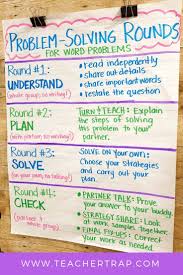 PROBLEM-SOLVING ROUNDS
FOR WORD PROBLEMS
Round #1:
UNDERSTAND
(whole group, no writing!)
• read independently
• share out details
• share important words
• restate the question
Round #2:
PLAN
(no writing!)
TURN & TEACH: Explain
the steps of solving
this problem to your
partner.
Round #3:
SOLVE
(on your own, no talking!)
SOLVE ON YOUR OWN:
Choose your strategies
and carry out your
plan.
Round #4:
CHECK
(partner & whole group)
• PARTNER TALK: Prove
your answer to your buddy.
• STRATEGY SHARE: Look
at work samples together.
• FINAL TOUCHES: Correct
your work as needed
WWW.TEACHERTRAP.COM